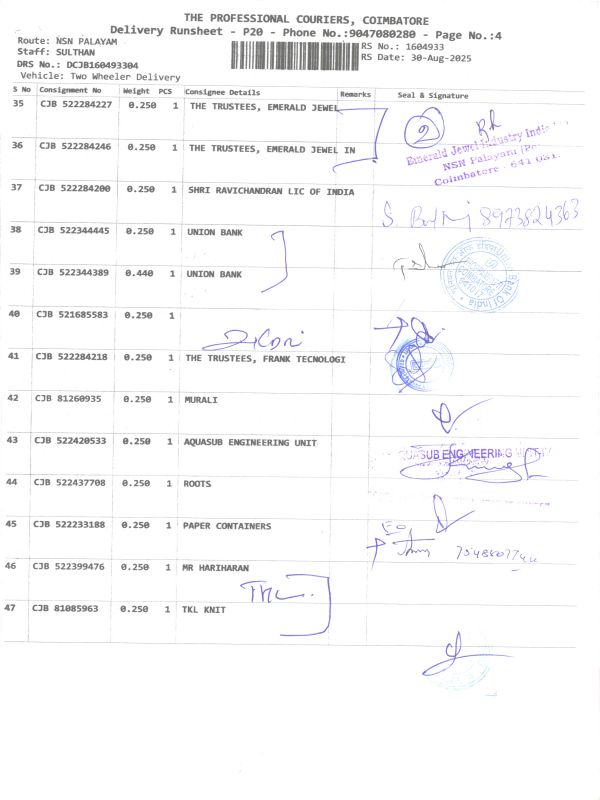 THE PROFESSIONAL COURIERS, COIMBATORE
Delivery Runsheet - P20 - Phone No.:9047080280 - Page No.:4
Route: NSN PALAYAM
RS No.: 1604933
Staff: SULTHAN
RS Date: 30-Aug-2025
DRS No.: DCJB160493304
Vehicle: Two Wheeler Delivery
S No Consignment No Weight PCS Consignee Details Remarks Seal & Signature
35 CJB 522284227 0.250 1 THE TRUSTEES, EMERALD JEWEL
2
Emerald Jewel Industry India
NSN Palayam
Coimbatore - 641 031.
36 CJB 522284246 0.250 1 THE TRUSTEES, EMERALD JEWEL IN
37 CJB 522284200 0.250 1 SHRI RAVICHANDRAN LIC OF INDIA
8973824363
38 CJB 522344445 0.250 1 UNION BANK
39 CJB 522344389 0.440 1 UNION BANK
Bank Of India
40 CJB 521685583 0.250 1
41 CJB 522284218 0.250 1 THE TRUSTEES, FRANK TECNOLOGI
42 CJB 81260935 0.250 1 MURALI
43 CJB 522420533 0.250 1 AQUASUB ENGINEERING UNIT
AQUASUB ENGINEERING
44 CJB 522437708 0.250 1 ROOTS
45 CJB 522233188 0.250 1 PAPER CONTAINERS
46 CJB 522399476 0.250 1 MR HARIHARAN
47 CJB 81085963 0.250 1 TKL KNIT